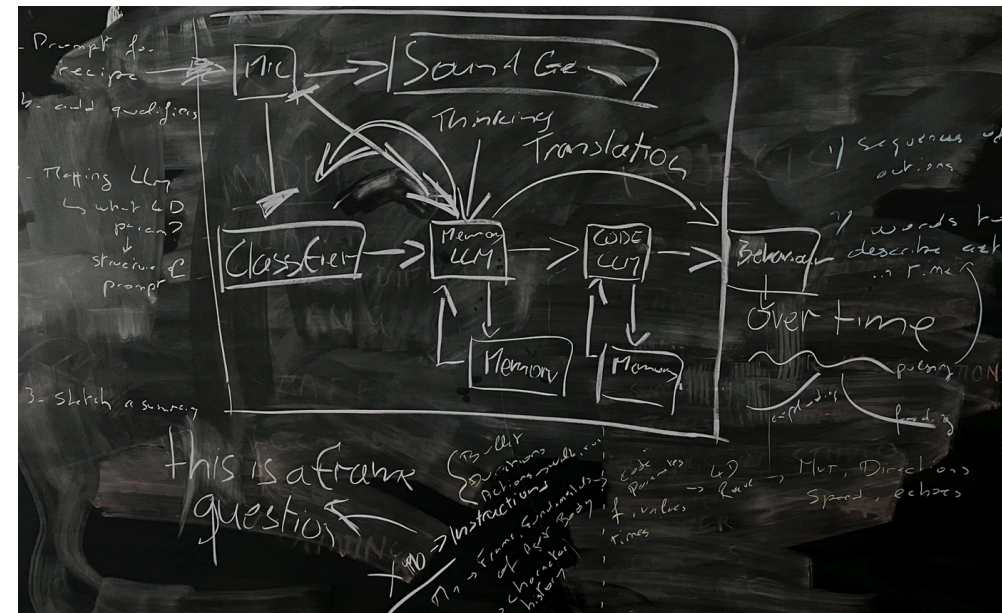 Prompt for
recipe
add qualifiers
LLM
what 4D
structure of
prompt
3- sketch a summary
Mic
Sound Gen
Thinking
Translation
Classifier
Memory
LLM
CODE
LLM
Behavior
Memory
Memory
1/ sequences
actions
words to
describe
in time
Over time
pulsing
exploding
fading
this is a frame
question
Bullit
Durations
Actions
Instructions
Frame, Fundamentals
of Agent Body
character
history
code
f, values
times
4D
Mvt, Directions
Speed, echoes